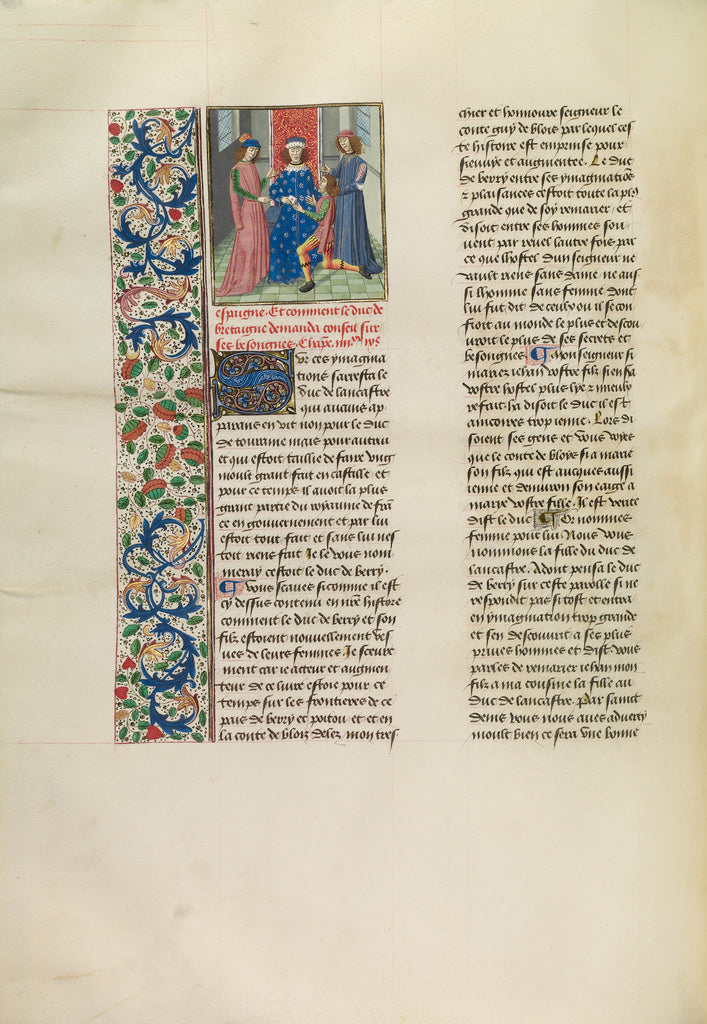 espaigne. Et comment le duc de
bretaigne demanda conseil sur
ses besongnes. Chapr̄e. iiii.xx
Sur ces ymagina
tions sarresta le
duc de lancastre
qui aucuns ap
parans en vit non pour le duc
de touraine mais pour autrui
et qui estoit taillie de faire vng
moult grant fait en castille et
pour ce temps il auoit la plus
grant partie du royaume de frā
ce en gouuernement et par lui
estoit tout fait et sans lui nes
toit riens fait Je le vous nom
meray cestoit le duc de berry.
Vous scaues si comme il est
cy dessus contenu en nr̄e histore
comment le duc de berry et son
filz estoient nouuellement ves
ues de leurs femmes. Je sceure
ment car ie acteur et augmen
teur de ce liure estoie pour ce
temps sur les frontieres de ce
pais de berry et poitou et et en
la conte de blois delez mon tres
chier et honnoure seigneur le
conte guy de blois par lequel ces
te histoire est emprinse pour
sieuuye et augmentee. Le duc
de berry entre ses ymagination̄s
z plaisances cestoit toute la pl9
grande que de soy remarier et
disoit entre ses hommes sou
uent par reuel lautre fois par
ce que lhostel dun seigneur ne
vault riens sans dame ne aus
si lhomme sans femme dont
lui fut dit de ceulx ou il se con
fioit au monde le plus et descou
uroit le plus de ses secretz et
besongnes Monseigneur si
mariez iehan vostre filz si en sa
vostre hostel plus lye z mieulx
refait ha disoit le duc il est
ancores trop ienne. Lors di
soient ses gens et vous vees
que le conte de bloys si a marie
son filz qui est aucques aussi
ienne et denuiron son eaige a
marye vostre fille. Il est verite
dist le duc Or nommes
femme pour lui. Nous vous
nommons la fille du duc de
lancastre. Adont pensa le duc
de berry sur ceste parolle si ne
respondit pas si tost et entra
en ymagination trop grande
et sen descouurit a ses plus
priues hommes et dist vous
parles de remarier iehan mon
filz a ma cousine la fille au
duc de lancastre. par sainct
denis vous nous aues aduerty
moult bien ce sera vne bonne